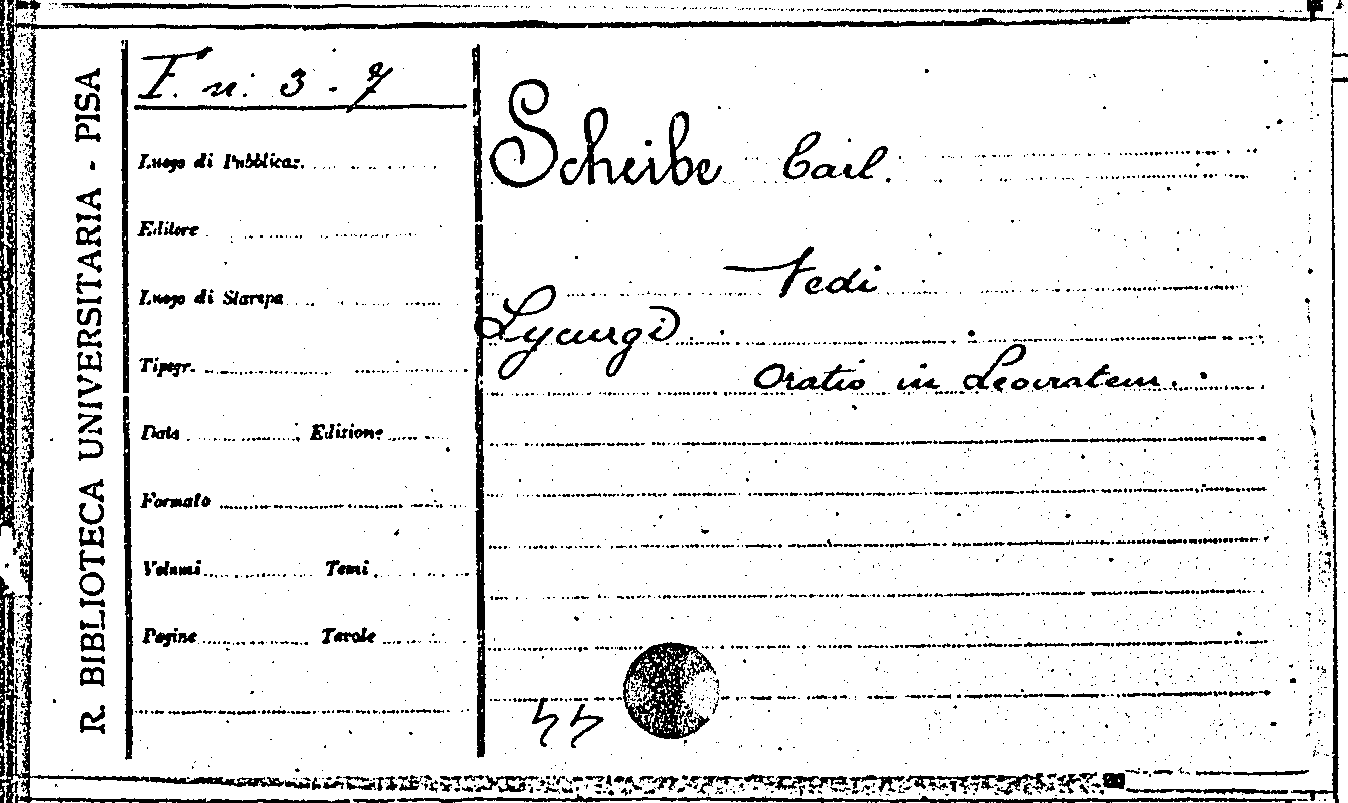 R. BIBLIOTECA UNIVERSITARIA - PISA
F. n. 3 - 7
Luogo di Pubblicaz.
Editore
Luogo di Stampa
Tipogr.
Data Edizione
Formato
Volumi Tomi
Pagine Tavole
Scheibe Carl.
Vedi
Lycurgi.
Oratio in Leocratem.
44